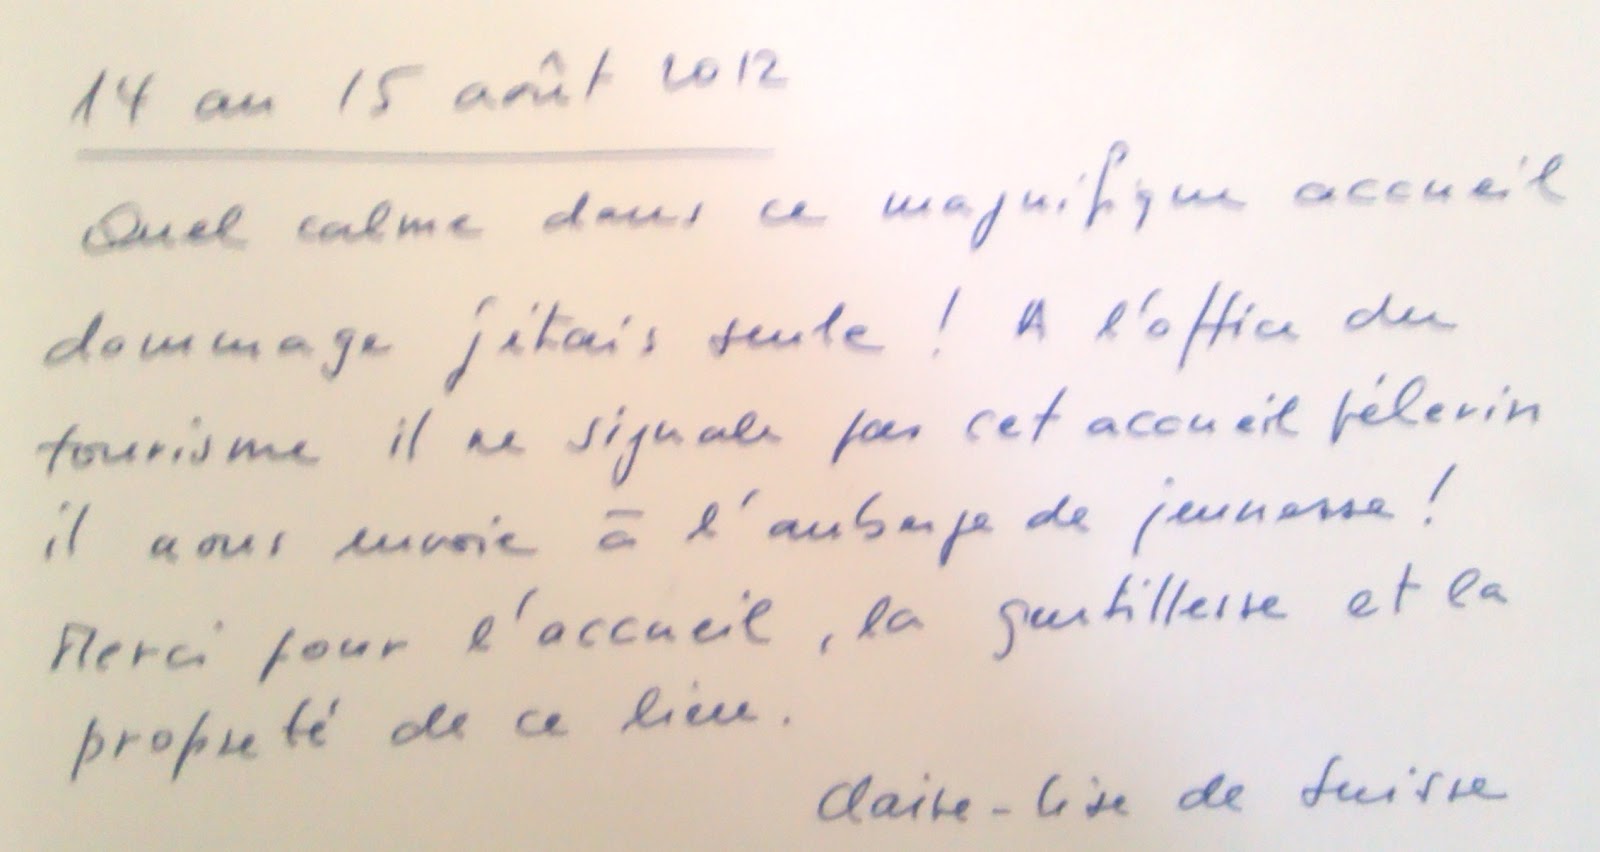 14 au 15 août 2012
Quel calme dans ce magnifique accueil
dommage j'étais seule ! A l'office du
tourisme il ne signale pas cet accueil pélerin
il nous envoie à l'auberge de jeunesse !
Merci pour l'accueil, la gentillesse et la
propreté de ce lieu.
Claire-Lise de Suisse